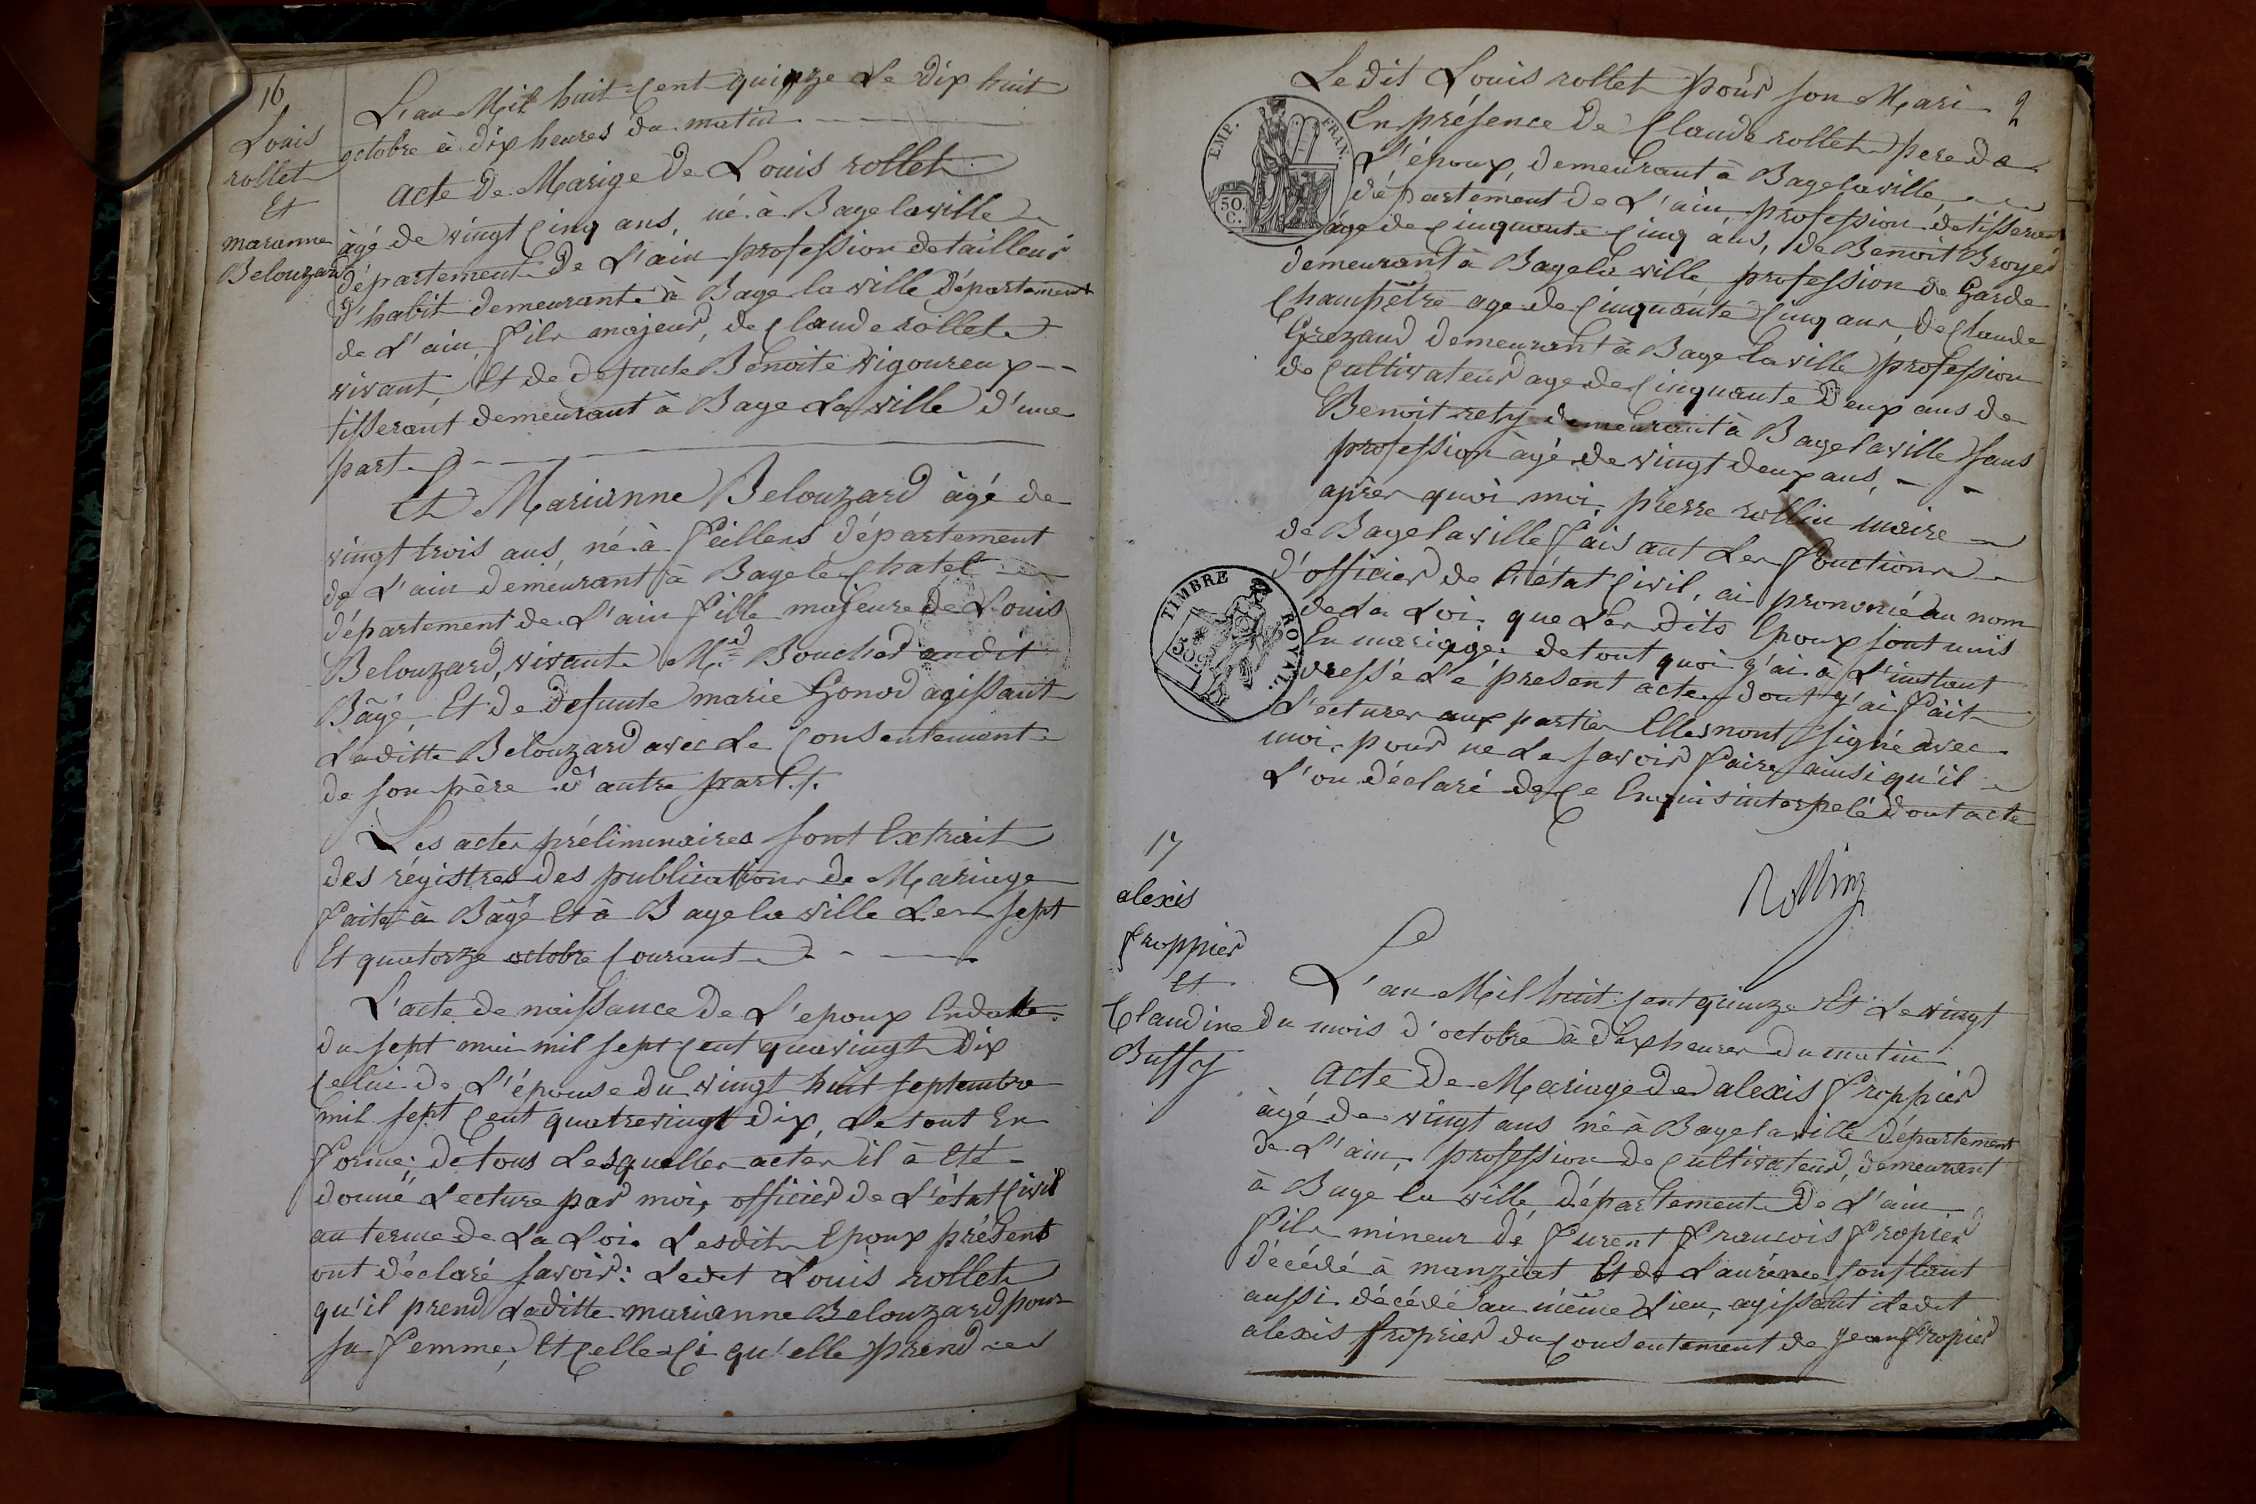 16
Louis
rollet
Et
marianne
Belouzard
L'an Mil huit Cent quinze Le Dix huit
octobre à dix heures du matin
acte De Marige De Louis rollet
âgé de vingt Cinq ans, né à Bage laville
département De L'ain profession de tailleur
d'habit demeurant à Bage la ville Département
de L'ain, fils majeur, de Claude rollet
vivant, Et de defunte Benoite vigoureux
tisserant demeurant à Bage La ville d'une
part
Et Marianne Belouzard âgé de
vingt trois ans, né à feillens département
de L'ain demeurant à Bage le Chatel
département de L'ain fille majeure de Louis
Belouzard, vivant Md Boucher audit
Bâgé, Et de defunte marie Gonod agissant
Laditte Belouzard avec Le Consentement
de son père d'autre part./.
Les actes préliminaires sont Extrait
des régistres des publications de Mariage
faites à Bâgé Et à Bage la ville Les sept
Et quatorze octobre Courant
L'acte de naissance de L'epoux En date
du sept mai mil sept Cent quavingt Dix
Celui de L'épouse du vingt huit septembre
mil sept Cent quatrevingt Dix, Le tout En
forme; de tous Lesquelles actes il à Eté
donné Lecture par moi, officier de L'état Civil
au terme de La Loi. Lesdits Epoux présents
ont déclaré savoir: Ledit Louis rollet
qu'il prend Laditte marianne Belouzard pour
sa femme, Et Celle Ci qu'elle prend
2
Le dit Louis rollet pour son Mari
En présence De Claude rollet pere de
L'époux, demeurant à Bage laville,
département de L'ain, profession de tisserant
âge de Cinquante Cinq ans, de Benoit Broyer
demeurant à Bage la ville profession de Garde
Champêtre age de Cinquante Cinq ans, de Claude
Grezaud demeurant à Bage la ville profession
de Cultivateur age de Cinquante Deux ans de
Benoit rety demeurant à Bage laville sans
profession âgé de vingt deux ans,
après quoi moi, pierre rollin maire
de Bage laville faisant Les fonctions
d'officier de L'état Civil, ai prononcé au nom
de La Loi que Les Dits Epoux sont unis
En mariage: de tout quoi j'ai à L'instant
dressé Le présent acte, dont j'ai fait
Lectures aux parties Elles nont signé avec
moi, pour ne Le savoir faire ainsi qu'il
L'on déclaré de Ce Enquis interpelé Dont acte
Rollin
EMP. FRAN.
50.
C.
TIMBRE ROYAL.
17
alexis
froppier
Et
Claudine
Buffy
L'an Mil huit Cent quinze Et Le vingt
du mois d'octobre à dix heures du matin
acte De Mariage de alexis froppier
âgé de vingt ans né à Bage la ville département
de L'ain, profession de Cultivateur, demeurant
à Bage la ville département de L'ain,
fils mineur de furent francois fropier
décédé à manziat Et de Laurence
aussi décédé au même Lieu, agissant Ledit
alexis froppier du Consentement de Jean fropier